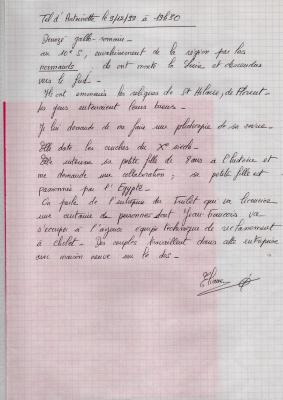 Tél d'Antoinette le 3/12/92 à 19h30
Denezé gallo-romain -
au 10è S, envahissement de la région par les
normands ; ils ont monté la Loire et descendu
vers le Sud -
Ils ont emmenés les religieux de St Hilaire, de Florent -
les gens enterraient leurs biens -
Je lui demande de me faire une photocopie de sa revue -
Elle date les couches du Xe siècle -
Elle intéresse sa petite fille de 8 ans à l'histoire et
me demande ma collaboration ; sa petite fille est
passionnée par l'Egypte -
On parle de l'entreprise qui va licencier
une centaine de personnes dont Jean-François va
s'occuper à l'agence équipe technique de reclassement
à cholet - Des couples travaillent dans cette entreprise
avec maison neuve sur le dos -